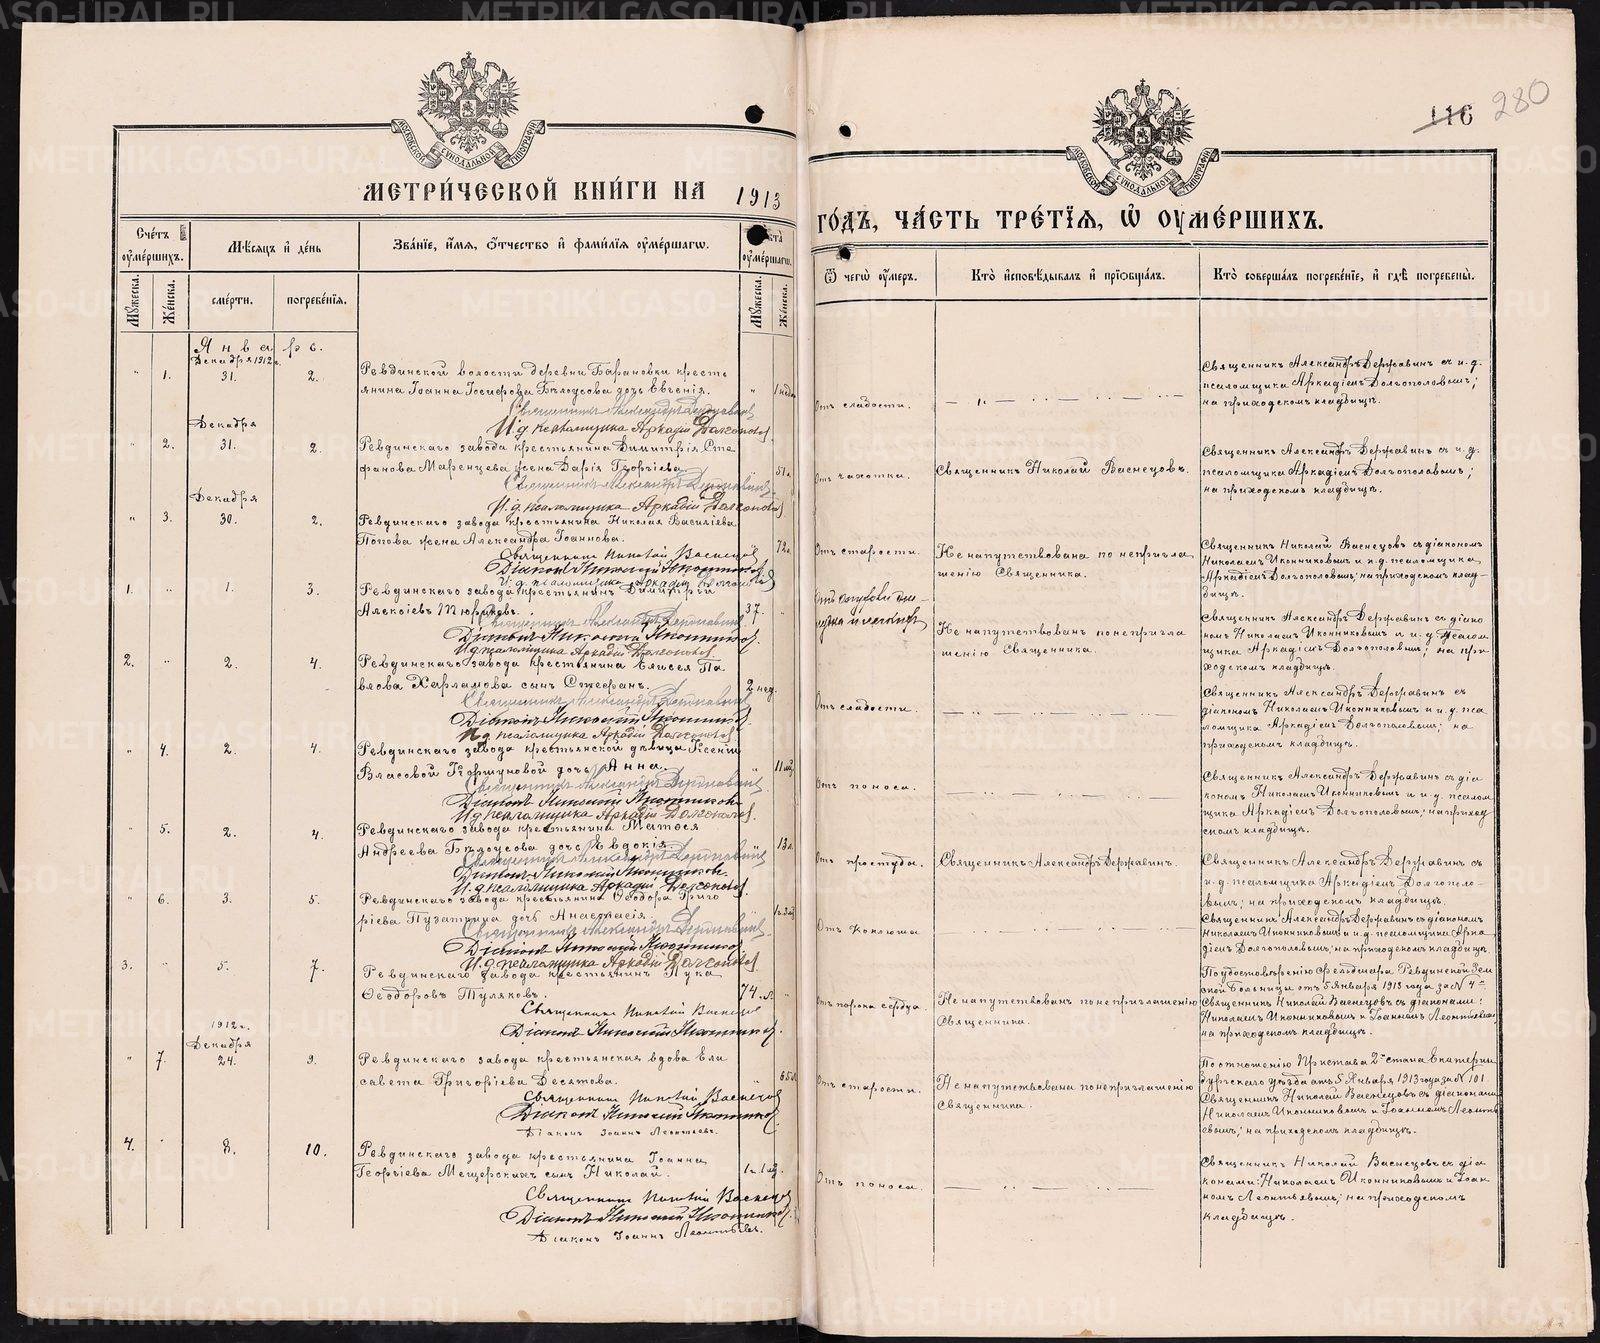 116 280
МЕТРИ́ЧЕСКОЙ КНИ́ГИ НА 1913 ГО́ДЪ, ЧА́СТЬ ТРЕ́ТЇѦ, Ѡ҆ ОУМЕ́РШИХЪ.
Сче́тъ оуме́ршихъ.
Мѣ́сѧцъ и҆ де́нь
Зва́нїе, и҆́мѧ, ѻ҆́тчество и҆ фамⷤи́лїѧ оуме́ршагѡ.
оуме́ршагѡ.
Ѿ чегѡ̀ оу́меръ.
Кто̀ и҆сповѣ́дывалъ и҆ прїѡбща́лъ.
Кто̀ соверша́лъ погребе́нїе, и҆ гдѣ̀ погребены̀.
Мꙋ́жеска. Же́нска. сме́рти. погребе́нїѧ. Мꙋ́жеска. Же́нска.
Января.
Декабря 1912 г.
" 1. 31. 2.
Ревдинской волости деревни Барановки кресть
янина Іоанна Іосифова Бѣлоусова дочь Евгенія.
Священникъ Александръ Державинъ
И.д. псаломщика Аркадій Долгополовъ
Отъ слабости.
Священникъ Александръ Державинъ съ и.д.
псаломщика Аркадіемъ Долгополовымъ;
на приходскомъ кладбищѣ.
Декабря
" 2. 31. 2.
Ревдинскаго завода крестьянина Димитрія Сте
фанова Маренцева жена Дарія Георгіева.
51 л.
Священникъ Александръ Державинъ
И.д. псаломщика Аркадій Долгополовъ
Отъ чахотки.
Священникъ Николай Васнецовъ.
Священникъ Александръ Державинъ съ и.д.
псаломщика Аркадіемъ Долгополовымъ;
на приходскомъ кладбищѣ.
Декабря
" 3. 30. 2.
Ревдинскаго завода крестьянина Николая Василіева
Попова жена Александра Іоаннова.
72 л.
Священникъ Николай Васнецовъ
Діаконъ Николай Иконниковъ
И.д. псаломщика Аркадій Долгополовъ
Отъ старости.
Не напутствована по неригла
шенію Священника.
Священникъ Николай Васнецовъ съ діакономъ
Николаемъ Иконниковымъ и и.д. псаломщика
Аркадіемъ Долгополовымъ; на приходскомъ клад-
бищѣ.
1. " 1. 3.
Ревдинскаго завода крестьянинъ Димитрій
Алексіевъ Тюриковъ.
37.
Священникъ Александръ Державинъ
Діаконъ Николай Иконниковъ
И.д. псаломщика Аркадій Долгополовъ
Не напутствованъ по неприглa
шенію Священника.
Священникъ Александръ Державинъ съ діако
номъ Николаемъ Иконниковымъ и и.д. псалом
щика Аркадіемъ Долгополовымъ; на при
ходскомъ кладбищѣ.
2. " 2. 4.
Ревдинскаго завода крестьянина Елисея Па
влова Харламова сынъ Стефанъ.
2 нед.
Священникъ Александръ Державинъ
Діаконъ Николай Иконниковъ
И.д. псаломщика Аркадій Долгополовъ
Отъ слабости.
Священникъ Александръ Державинъ съ
діакономъ Николаемъ Иконниковымъ и и.д. пса
ломщика Аркадіемъ Долгополовымъ; на
приходскомъ кладбищѣ.
" 4. 2. 4.
Ревдинскаго завода крестьянской дѣвицы Ксеніи
Власовой Коршуновой дочь Анна.
11 мѣ.
Священникъ Александръ Державинъ
Діаконъ Николай Иконниковъ
И.д. псаломщика Аркадій Долгополовъ
Отъ поноса.
Священникъ Александръ Державинъ съ діа
кономъ Николаемъ Иконниковымъ и и.д. псалом
щика Аркадіемъ Долгополовымъ; на приход
скомъ кладбищѣ.
" 5. 2. 4.
Ревдинскаго завода крестьянина Матѳея
Андреева Бѣлоусова дочь Евдокія.
13 л.
Священникъ Александръ Державинъ
Діаконъ Николай Иконниковъ
И.д. псаломщика Аркадій Долгополовъ
Отъ простуды.
Священникъ Александръ Державинъ.
Священникъ Александръ Державинъ съ
и.д. псаломщика Аркадіемъ Долгополо-
вымъ; на приходскомъ кладбищѣ.
" 6. 3. 5.
Ревдинскаго завода крестьянина Ѳеодора Григо
ріева Пузаткина дочь Анастасія.
Священникъ Александръ Державинъ
Діаконъ Николай Иконниковъ
И.д. псаломщика Аркадій Долгополовъ
Отъ коклюша
Священникъ Александръ Державинъ съ діакономъ
Николаемъ Иконниковымъ и и.д. псаломщика Арка
діемъ Долгополовымъ; на приходскомъ кладбищѣ.
3. " 5. 7.
Ревдинскаго завода крестьянинъ Лука
Ѳеодоровъ Туляковъ.
74. л.
Священникъ Николай Васнецовъ
Діаконъ Николай Иконниковъ
Отъ порока сердца.
Не напутствованъ по неприглашенію
Священника.
По удостовѣренію Фельдшера Ревдинской Зем
ской Больницы отъ 5 Января 1913 года за № 4
Священникъ Николай Васнецовъ съ діаконами:
Николаемъ Иконниковымъ и Іоанномъ Леонтьевымъ;
на приходскомъ кладбищѣ.
1912 г.
Декабря
" 7. 24. 9.
Ревдинскаго завода крестьянская вдова Ели
савета Григоріева Десятова.
85 л.
Священникъ Николай Васнецовъ
Діаконъ Николай Иконниковъ
Діаконъ Іоаннъ Леонтьевъ.
Отъ старости.
Не напутствована по неприглашенію
Священника.
По отношенію Пристава 2 стана Екатерин
бургскаго уѣзда отъ 5 Января 1913 года за № 101
Священникъ Николай Васнецовъ съ діаконами
Николаемъ Иконниковымъ и Іоанномъ Леонть
евымъ; на приходскомъ кладбищѣ.
4. " 8. 10.
Ревдинскаго завода крестьянина Іоанна
Георгіева Мещерскихъ сынъ Николай.
1 г. 1 мѣ.
Священникъ Николай Васнецовъ
Діаконъ Николай Иконниковъ
Діаконъ Іоаннъ Леонтьевъ.
Отъ поноса.
Священникъ Николай Васнецовъ съ діа
конами: Николаемъ Иконниковымъ и Іоан
номъ Леонтьевымъ; на приходскомъ
кладбищѣ.
METRIKI.GASO-URAL.RU